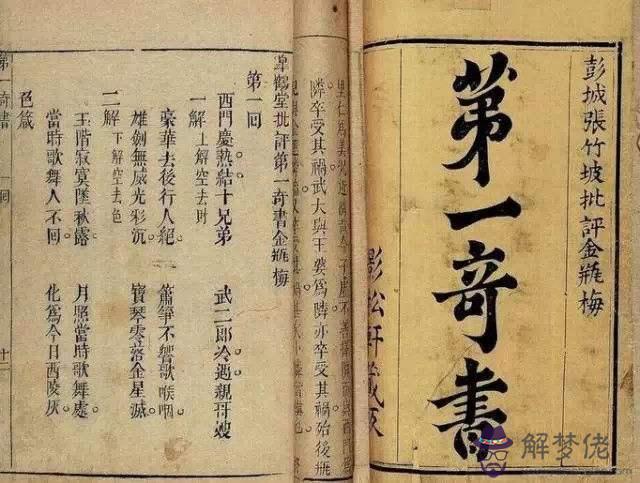 彭城張竹坡批評金瓶梅
第一奇書
影松軒藏板
里仁為美況近
隣卒受其禍武大與王婆爲隣亦卒受其禍殆後瓶
皐鶴堂批評第一奇書金瓶梅
第一回
西門慶熱結十兄弟 武二郎冷遇親哥嫂
一解 上解空去财
豪華去後行人絕。 簫箏不響歌喉咽。
雄劍無威光彩沉。 寶琴零落金星滅。
二解 下解空去色
玉階寂寞墜秋露。 月照當時歌舞處。
當時歌舞人不回。 化爲今日西陵灰。
色箴
第一奇書 回 十二
解梦佬